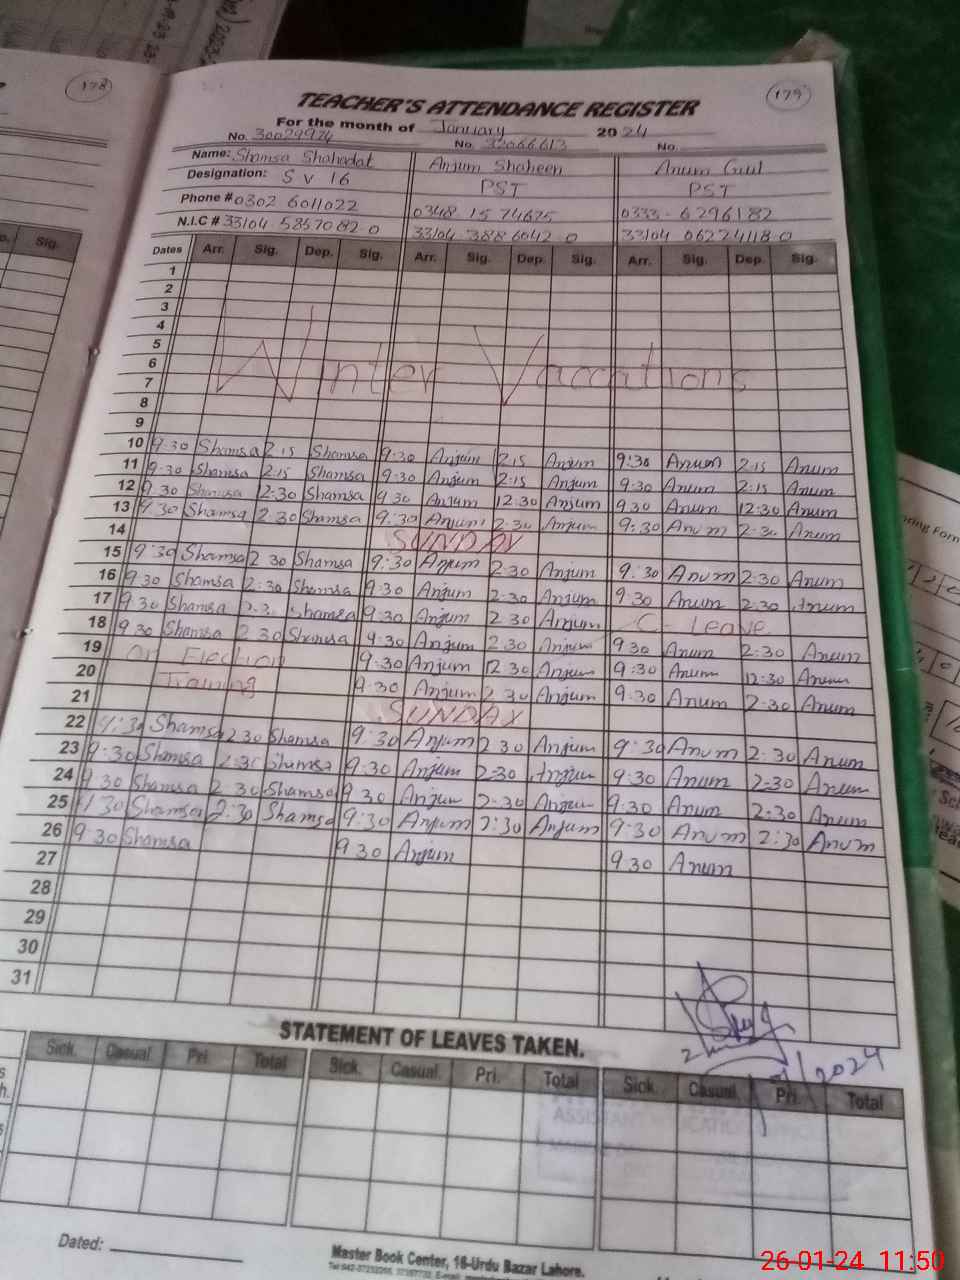 178
179
TEACHER'S ATTENDANCE REGISTER
For the month of January 2024
No. 30029974 No. 32066613 No.
Name: Shamsa Shahadat Anjum Shaheen Anum Gul
Designation: S V 16 PST PST
Phone # 0302 6011022 0348 1574675 0333-6296182
N.I.C # 33104-5857082-0 33104 3886042-0 33104 06274118-0
Sig.
Dates Arr. Sig. Dep. Sig. Arr. Sig. Dep. Sig. Arr. Sig. Dep. Sig.
1
2
3
4
5
6
7
8
9
Winter Vaccations
10 9:30 Shamsa 2:15 Shamsa 9:30 Anjum 2:15 Anjum 9:30 Anum 2:15 Anum
11 9:30 Shamsa 2:15 Shamsa 9:30 Anjum 2:15 Anjum 9:30 Anum 2:15 Anum
12 9:30 Shamsa 12:30 Shamsa 9:30 Anjum 12:30 Anjum 9:30 Anum 12:30 Anum
13 9:30 Shamsa 2:30 Shamsa 9:30 Anjum 2:30 Anjum 9:30 Anum 2:30 Anum
14 SUNDAY
15 9:30 Shamsa 2:30 Shamsa 9:30 Anjum 2:30 Anjum 9:30 Anum 2:30 Anum
16 9:30 Shamsa 2:30 Shamsa 9:30 Anjum 2:30 Anjum 9:30 Anum 2:30 Anum
17 9:30 Shamsa 2:30 Shamsa 9:30 Anjum 2:30 Anjum C-Leave
18 9:30 Shamsa 2:30 Shamsa 9:30 Anjum 2:30 Anjum 9:30 Anum 2:30 Anum
19 On Election 9:30 Anjum 12:30 Anjum 9:30 Anum 12:30 Anum
20 Training 9:30 Anjum 2:30 Anjum 9:30 Anum 2:30 Anum
21 SUNDAY
22 9:30 Shamsa 2:30 Shamsa 9:30 Anjum 2:30 Anjum 9:30 Anum 2:30 Anum
23 9:30 Shamsa 2:30 Shamsa 9:30 Anjum 2:30 Anjum 9:30 Anum 2:30 Anum
24 9:30 Shamsa 2:30 Shamsa 9:30 Anjum 2:30 Anjum 9:30 Anum 2:30 Anum
25 9:30 Shamsa 2:30 Shamsa 9:30 Anjum 2:30 Anjum 9:30 Anum 2:30 Anum
26 9:30 Shamsa 9:30 Anjum 9:30 Anum
27
28
29
30
31
STATEMENT OF LEAVES TAKEN.
Sick. Casual. Pri. Total Sick. Casual. Pri. Total Sick. Casual. Pri. Total
Dated:
Master Book Center, 16-Urdu Bazar Lahore.
26-01-24 11:50